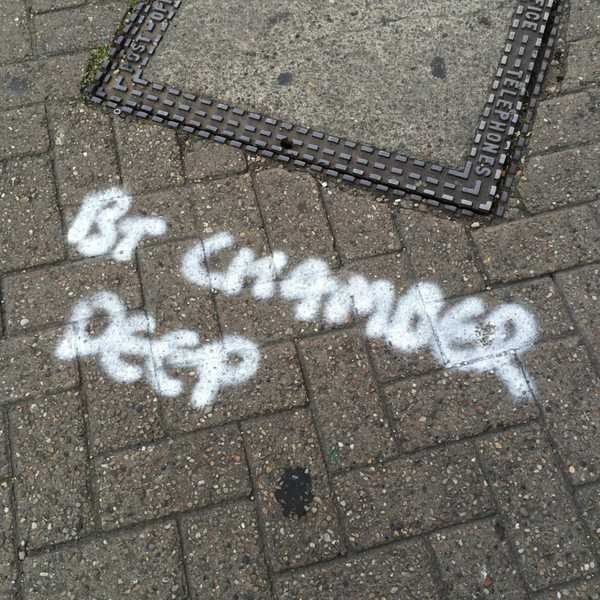 POST OFFICE TELEPHONES
BT CHAMDER
DEEP